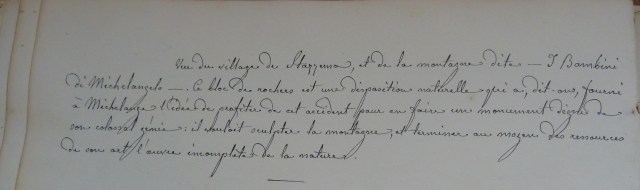 Vue du village de Stazzema, et de la montagne dite — I Bambini
di Michelangelo —. Ce bloc de rochers est une disposition naturelle qui a, dit-on, fourni
à Michelange l'idée de profiter de cet accident pour en faire un monument digne de
son colossal génie : il voulait sculpter la montagne, et terminer au moyen des ressources
de son art l'œuvre incomplète de la nature.